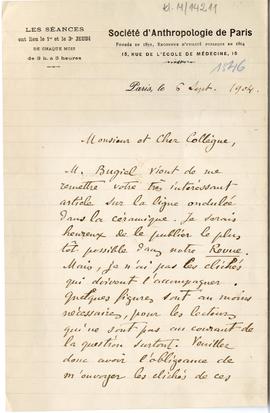 kl. M/14211
LES SÉANCES
ont lieu le 1er et le 3e JEUDI
DE CHAQUE MOIS
de 3 h. à 5 heures
Société d'Anthropologie de Paris
FONDÉE EN 1859, RECONNUE D'UTILITÉ PUBLIQUE EN 1864
15, RUE DE L'ÉCOLE DE MÉDECINE, 15
1546
Paris, le 6 Sept. 1904.
Monsieur et Cher Collègue,
M. Bugiel vient de me
remettre votre très intéressant
article sur la ligne ondulée
dans la céramique. Je serais
heureux de le publier le plus
tôt possible dans notre Revue.
Mais, je n'ai pas les clichés
qui doivent l'accompagner.
Quelques figures sont au moins
nécessaires, pour les lecteurs
qui ne sont pas au courant de
la question surtout. Veuillez
donc avoir l'obligeance de
m'envoyer les clichés de ces